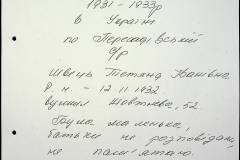 1931-1933р
в Україні
по Пересадівській
с/р
Швець Тетяна Іванівна
Р. н. - 12.11.1932
вулиця Жовтнева, 52
Була маленька,
батьки не розповідали,
не пам'ятаю.